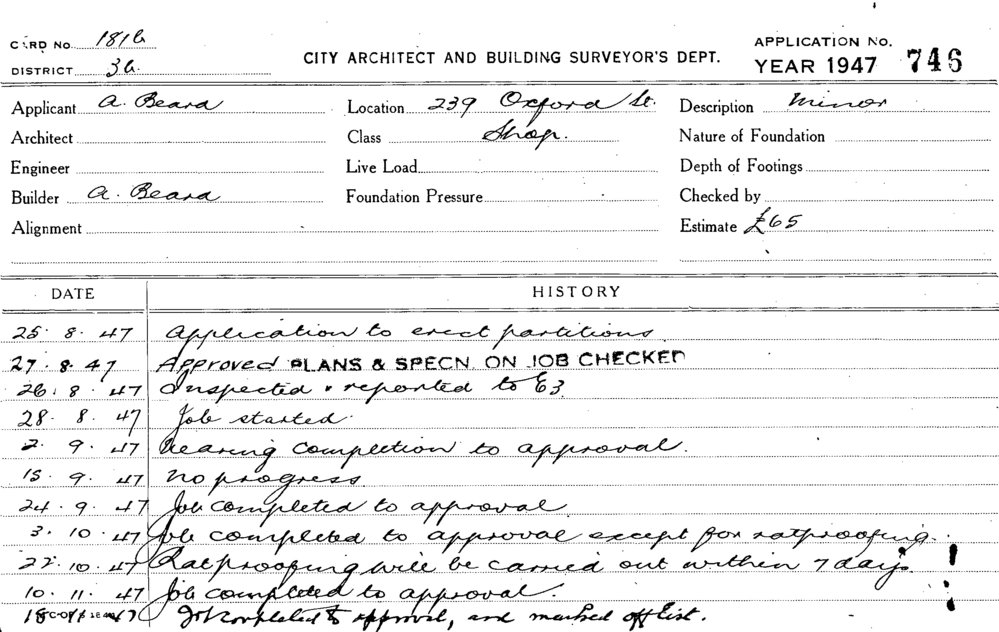 CARD No. 1816
CITY ARCHITECT AND BUILDING SURVEYOR'S DEPT.
APPLICATION No.
YEAR 1947 746
DISTRICT 36
Applicant A. Beard Location 239 Oxford St. Description Minor
Architect Class Shop. Nature of Foundation
Engineer Live Load Depth of Footings
Builder A. Beard Foundation Pressure Checked by
Alignment Estimate £65
DATE HISTORY
25. 8. 47 Application to erect partitions
27. 8. 47 Approved PLANS & SPECN. ON JOB CHECKED
26. 8. 47 Inspected & reported to E3.
28. 8. 47 Job started.
2. 9. 47 Nearing completion to approval.
15. 9. 47 No progress
24. 9. 47 Job completed to approval.
3. 10. 47 Job completed to approval except for ratproofing.
22. 10. 47 Ratproofing will be carried out within 7 days.
10. 11. 47 Job completed to approval.
18 47 Job completed to approval, and marked off list.